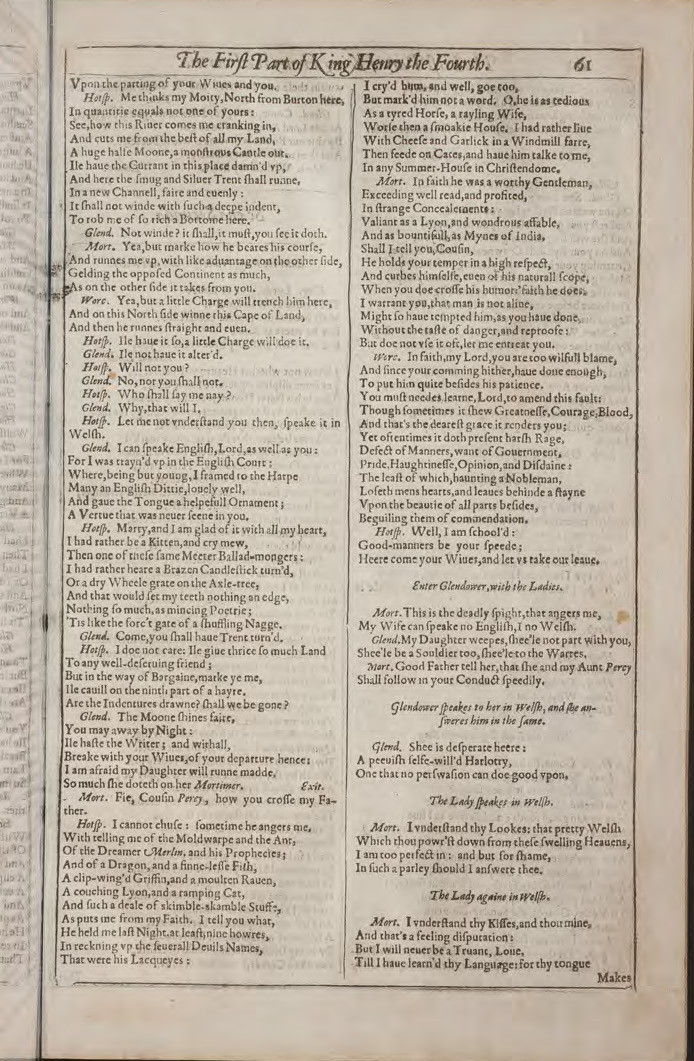 The Firſt Part of King Henry the Fourth. 61
Vpon the parting of your Wiues and you.
Hotſp. Me thinks my Moity, North from Burton here,
In quantitie equals not one of yours :
See, how this Riuer comes me cranking in,
And cuts me from the beſt of all my Land,
A huge halfe Moone, a monſtrous Cantle out.
Ile haue the Currant in this place damn'd vp,
And here the ſmug and Siluer Trent ſhall runne,
In a new Channell, faire and euenly :
It ſhall not winde with ſuch a deepe indent,
To rob me of ſo rich a Bottome here.
Glend. Not winde? it ſhall, it muſt, you ſee it doth.
Mort. Yea, but marke how he beares his courſe,
And runnes me vp, with like aduantage on the other ſide,
Gelding the oppoſed Continent as much,
As on the other ſide it takes from you.
Worc. Yea, but a little Charge will trench him here,
And on this North ſide winne this Cape of Land,
And then he runnes ſtraight and euen.
Hotſp. Ile haue it ſo, a little Charge will doe it.
Glend. Ile not haue it alter'd.
Hotſp. Will not you ?
Glend. No, nor you ſhall not.
Hotſp. Who ſhall ſay me nay ?
Glend. Why, that will I.
Hotſp. Let me not vnderſtand you then, ſpeake it in
Welſh.
Glend. I can ſpeake Engliſh, Lord, as well as you :
For I was trayn'd vp in the Engliſh Court ;
Where, being but young, I framed to the Harpe
Many an Engliſh Dittie, louely well,
And gaue the Tongue a helpefull Ornament ;
A Vertue that was neuer ſeene in you.
Hotſp. Marry, and I am glad of it with all my heart,
I had rather be a Kitten, and cry mew,
Then one of theſe ſame Meeter Ballad-mongers :
I had rather heare a Brazen Candleſtick turn'd,
Or a dry Wheele grate on the Axle-tree,
And that would ſet my teeth nothing an edge,
Nothing ſo much, as mincing Poetrie ;
'Tis like the forc't gate of a ſhuffling Nagge.
Glend. Come, you ſhall haue Trent turn'd.
Hotſp. I doe not care: Ile giue thrice ſo much Land
To any well-deſeruing friend ;
But in the way of Bargaine, marke ye me,
Ile cauill on the ninth part of a hayre.
Are the Indentures drawne? ſhall we be gone ?
Glend. The Moone ſhines faire,
You may away by Night :
Ile haſte the Writer ; and withall,
Breake with your Wiues, of your departure hence:
I am afraid my Daughter will runne madde,
So much ſhe doteth on her Mortimer. Exit.
Mort. Fie, Couſin Percy, how you croſſe my Fa-
ther.
Hotſp. I cannot chuſe : ſometime he angers me,
With telling me of the Moldwarpe and the Ant,
Of the Dreamer Merlin, and his Prophecies ;
And of a Dragon, and a finne-leſſe Fiſh,
A clip-wing'd Griffin, and a moulten Rauen,
A couching Lyon, and a ramping Cat,
And ſuch a deale of skimble-skamble Stuffe,
As puts me from my Faith. I tell you what,
He held me laſt Night, at leaſt, nine howres,
In reckning vp the ſeuerall Deuils Names,
That were his Lacqueyes :
I cry'd hum, and well, goe too,
But mark'd him not a word. O, he is as tedious
As a tyred Horſe, a rayling Wife,
Worſe then a ſmoakie Houſe. I had rather liue
With Cheeſe and Garlick in a Windmill farre,
Then feede on Cates, and haue him talke to me,
In any Summer-Houſe in Chriſtendome.
Mort. In faith he was a worthy Gentleman,
Exceeding well read, and profited,
In ſtrange Concealements :
Valiant as a Lyon, and wondrous affable,
And as bountifull, as Mynes of India.
Shall I tell you, Couſin,
He holds your temper in a high reſpect,
And curbes himſelfe, euen of his naturall ſcope,
When you doe croſſe his humor: 'faith he does.
I warrant you, that man is not aliue,
Might ſo haue tempted him, as you haue done,
Without the taſte of danger, and reproofe :
But doe not vſe it oft, let me entreat you.
Worc. In faith, my Lord, you are too wilfull blame,
And ſince your comming hither, haue done enough,
To put him quite beſides his patience.
You muſt needes learne, Lord, to amend this fault:
Though ſometimes it ſhew Greatneſſe, Courage, Blood,
And that's the deareſt grace it renders you ;
Yet oftentimes it doth preſent harſh Rage,
Defect of Manners, want of Gouernment,
Pride, Haughtineſſe, Opinion, and Diſdaine :
The leaſt of which, haunting a Nobleman,
Loſeth mens hearts, and leaues behinde a ſtayne
Vpon the beautie of all parts beſides,
Beguiling them of commendation.
Hotſp. Well, I am ſchool'd :
Good-manners be your ſpeede ;
Heere come your Wiues, and let vs take our leaue.
Enter Glendower, with the Ladies.
Mort. This is the deadly ſpight, that angers me,
My Wife can ſpeake no Engliſh, I no Welſh.
Glend. My Daughter weepes, ſhee'le not part with you,
Shee'le be a Souldier too, ſhee'le to the Warres.
Mort. Good Father tell her, that ſhe and my Aunt Percy
Shall follow in your Conduct ſpeedily.
Glendower ſpeakes to her in Welſh, and ſhe an-
ſweres him in the ſame.
Glend. Shee is deſperate heere :
A peeuiſh ſelfe-will'd Harlotry,
One that no perſwaſion can doe good vpon.
The Lady ſpeakes in Welſh.
Mort. I vnderſtand thy Lookes: that pretty Welſh
Which thou powr'ſt down from theſe ſwelling Heauens,
I am too perfect in : and but for ſhame,
In ſuch a parley ſhould I anſwere thee.
The Lady againe in Welſh.
Mort. I vnderſtand thy Kiſſes, and thou mine,
And that's a feeling diſputation :
But I will neuer be a Truant, Loue,
Till I haue learn'd thy Language: for thy tongue
Makes